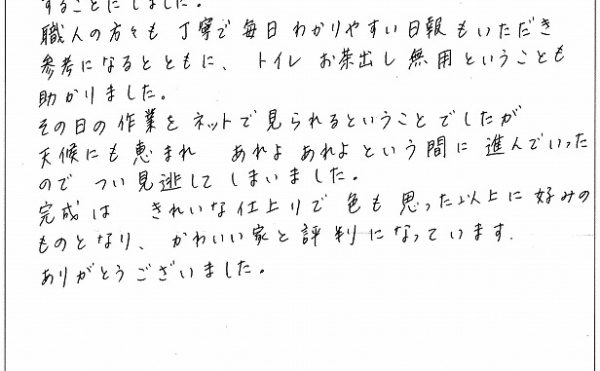 することにしました。
職人の方々も 丁寧で 毎日 わかりやすい 日報 もいただき
参考になるとともに、 トイレ お茶出し 無用 ということも
助かりました。
その日の作業を ネットで 見られるということでしたが
天候にも 恵まれ あれよ あれよ という 間に 進んでいった
ので つい 見逃して しまいました。
完成は きれいな 仕上りで 色も 思った以上に 好みの
ものとなり、 かわいい 家と 評判になっています.
ありがとうございました。